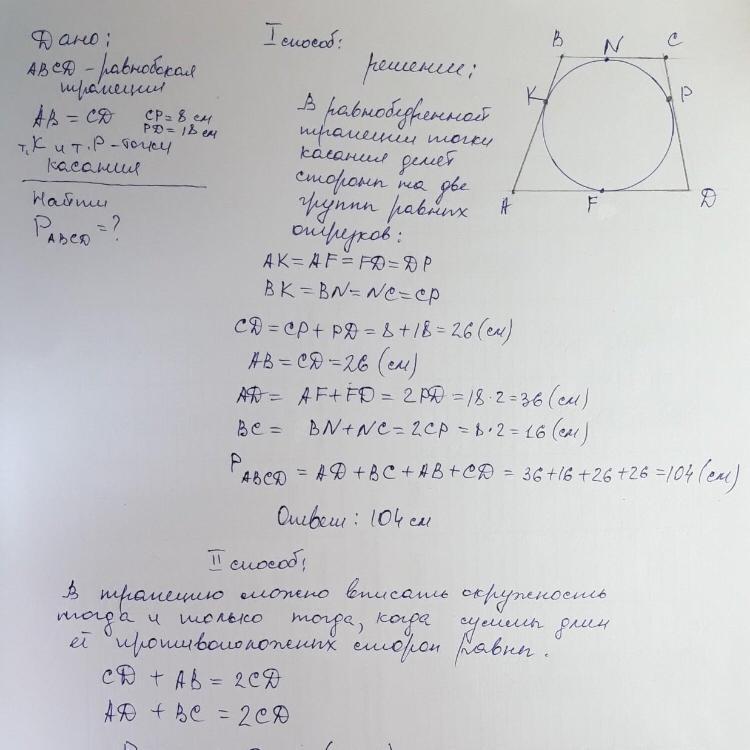 Дано:
ABCD - равнобокая
трапеция
AB = CD CP = 8 см
PD = 18 см
т. K и т. P - точки
касания
Найти
P ABCD = ?
I способ:
решение:
В равнобедренной
трапеции точки
касания делят
стороны на две
группы равных
отрезков:
B N C
K P
A F D
AK = AF = FD = DP
BK = BN = NC = CP
CD = CP + PD = 8 + 18 = 26 (см)
AB = CD = 26 (см)
AD = AF + FD = 2PD = 18 · 2 = 36 (см)
BC = BN + NC = 2CP = 8 · 2 = 16 (см)
P ABCD = AD + BC + AB + CD = 36 + 16 + 26 + 26 = 104 (см)
Ответ: 104 см
II способ:
В трапецию можно вписать окружность
тогда и только тогда, когда суммы длин
её противоположных сторон равны.
CD + AB = 2CD
AD + BC = 2CD